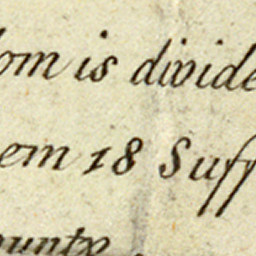 om is divide
em 18 Suff
ounty